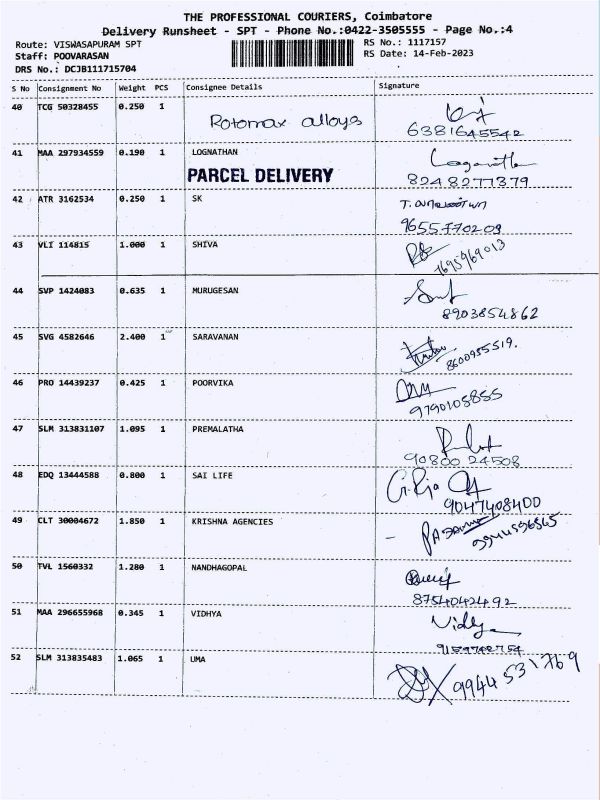 THE PROFESSIONAL COURIERS, Coimbatore
Delivery Runsheet - SPT - Phone No.:0422-3505555 - Page No.:4
Route: VISWASAPURAM SPT RS No.: 1117157
Staff: POOVARASAN RS Date: 14-Feb-2023
DRS No.: DCJB111715704
S No Consignment No Weight PCS Consignee Details Signature
40 TCG 50328455 0.250 1 Rotomax alloys
6381645542
41 MAA 297934559 0.190 1 LOGNATHAN Loganathan
PARCEL DELIVERY 8248277379
42 ATR 3162534 0.250 1 SK
9655770209
43 VLI 114815 1.000 1 SHIVA
7695969013
44 SVP 1424083 0.635 1 MURUGESAN
8903854862
45 SVG 4582646 2.400 1 SARAVANAN
8600955519.
46 PRO 14439237 0.425 1 POORVIKA
9790105855
47 SLM 313831107 1.095 1 PREMALATHA
90800 24508
48 EDQ 13444588 0.800 1 SAI LIFE
9047408400
49 CLT 30004672 1.850 1 KRISHNA AGENCIES
9944596865
50 TVL 1560332 1.280 1 NANDHAGOPAL
8754042492
51 MAA 296655968 0.345 1 VIDHYA Vidhya
9159742754
52 SLM 313835483 1.065 1 UMA
9944531769